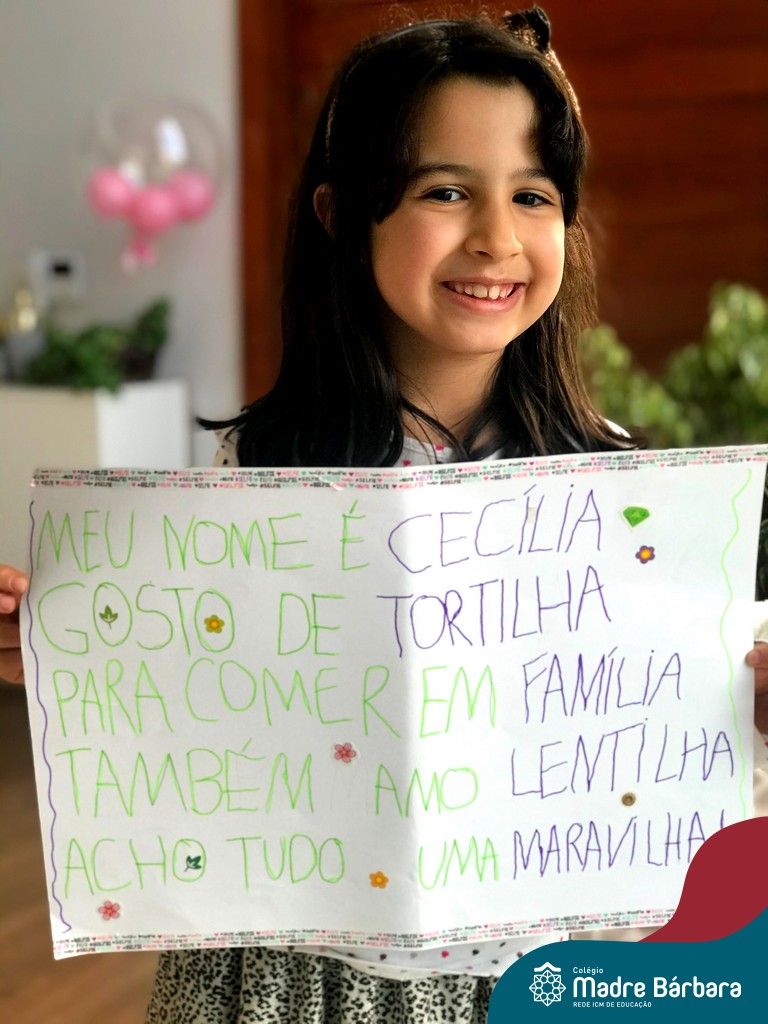 MEU NOME É CECÍLIA
GOSTO DE TORTILHA
PARA COMER EM FAMÍLIA
TAMBÉM AMO LENTILHA
ACHO TUDO UMA MARAVILHA!
Colégio
Madre Bárbara
REDE ICM DE EDUCAÇÃO